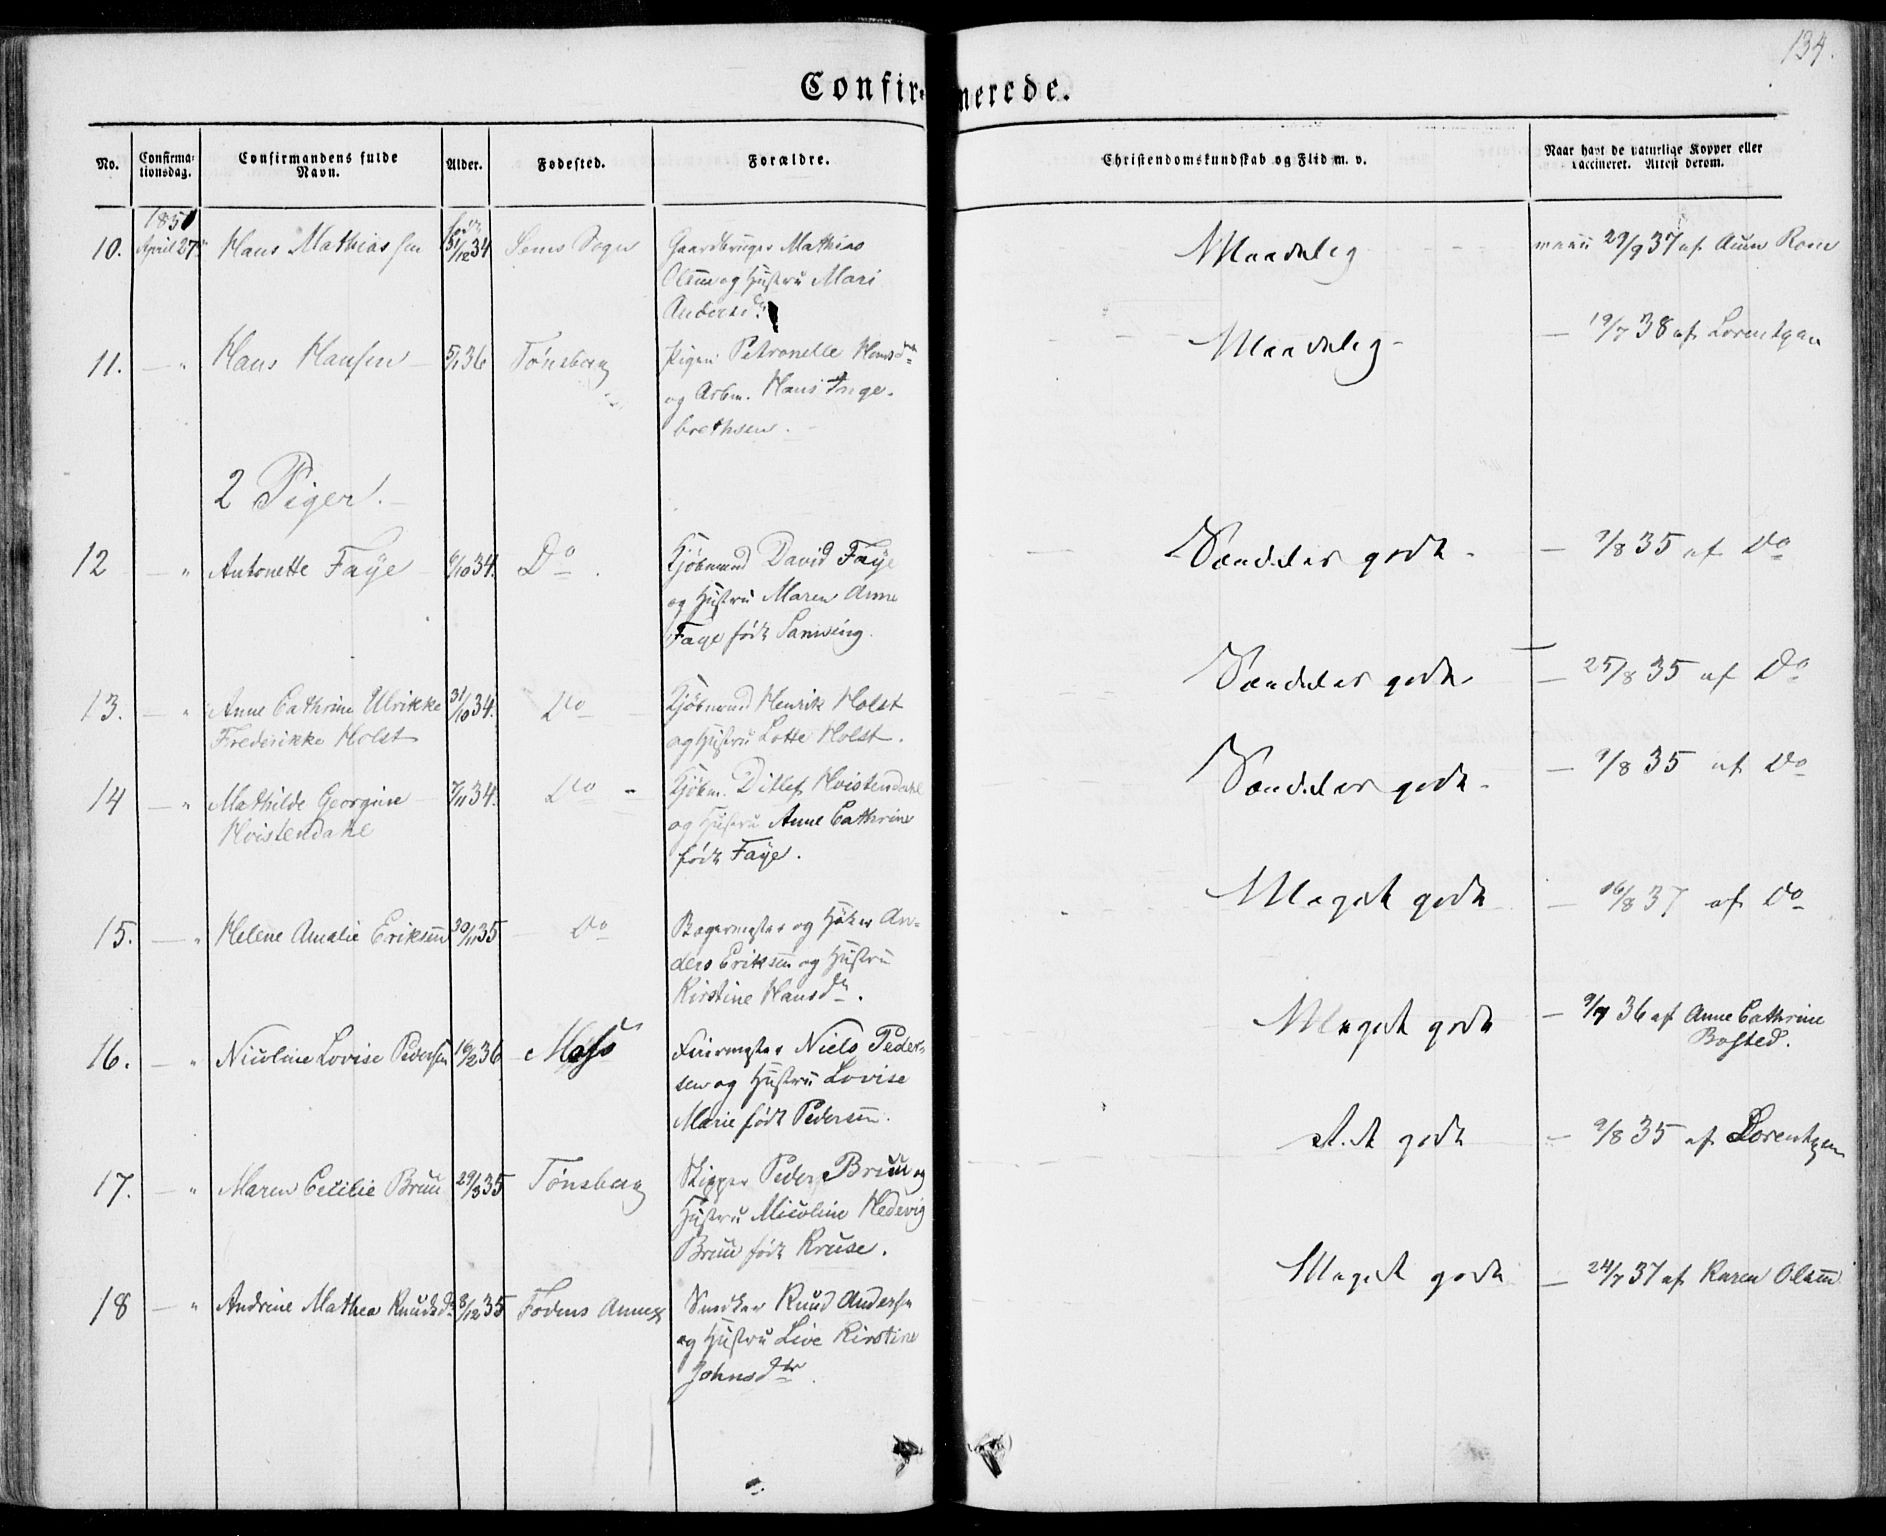 134.
Confirmerede.
No. Confirmationsdag. Confirmandens fulde Navn. Alder. Fødested. Forældre. Christendomskundskab og Flid m. v. Naar havt de naturlige Kopper eller vaccineret. Attest derom.
1851
10. April 27 Hans Mathiassen 31/12 34 Sems Sogn Gaardbruger Mathias Maadelig 29/9 37 af
Olsen og Hustru Mari
Andersd.
11. — " Hans Hansen 5/1 36 Tønsberg Pigen Petronelle Hansdr Maadelig — 19/7 38 af Lorentzen
og Arbm. Hans Inge-
brethsen.
2 Piger.
12 — " Antonette Faÿe 6/10 34. Do Kjøbmand David Faÿe Særdeles godt — 9/8 35 af Do
og Hustru Maren Anne
Faye født
13. — " Anne Cathrine Ulrikke 31/10 34. Do Kjøbmand Henrik Holst Særdeles godt — 25/8 35 af Do
Frederikke Holst og Hustru Lotte Holst.
14 — " Mathilde Georgine 7/11 34. Do Kjøbm. Ditlef Hvistendahl Særdeles godt — 9/8 35 af Do
Hvistendahl og Hustru Anne Cathrine
født Faÿe.
15. — " Helene Amalie Eriksen 30/11 35 Do Bagermester og Høker An- Meget godt — 16/8 37 af Do
ders Eriksen og Hustru
Kirstine Hansdr.
16. — " Nicoline Lovise Pedersen 19/2 36 Moss Feiermester Niels Peder- Meget godt — 9/7 36 af Anne Cathrine
sen og Hustru Lovise Bosted.
Marie født Pedersen.
17. — " Maren Cecilie Bruu 29/3 35 Tønsberg Skipper Peder Bruu og godt — 9/8 35 af Lorentzen
Hustru Nicoline Hedevig
Bruu født Kruse.
18 — " Andrine Mathea Knudsdr 8/12 35 Annex Snedker Knud Andersen Meget godt — 24/7 37 af Karen Olsen
og Hustru Live Kirstine
Johnsdtr.